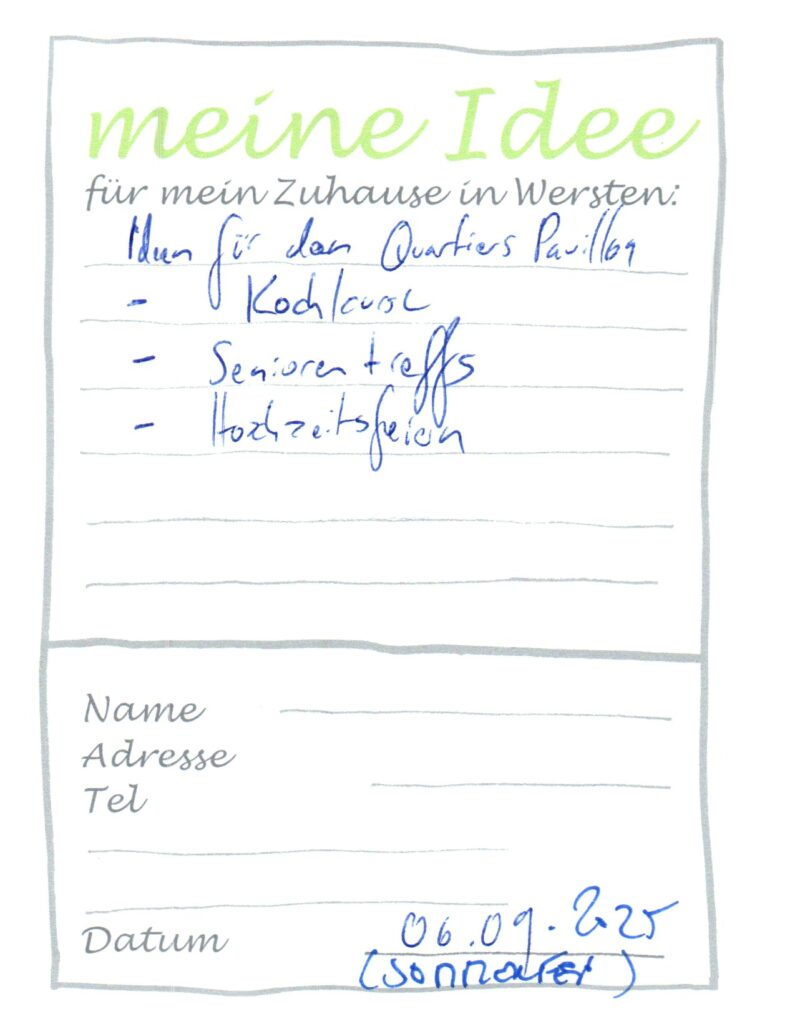 meine Idee
für mein Zuhause in Wersten:
Ideen für den Quartiers Pavillon
- Kochkurse
- Seniorentreffs
- Hochzeitsfeiern
Name
Adresse
Tel
Datum 06.09.2025